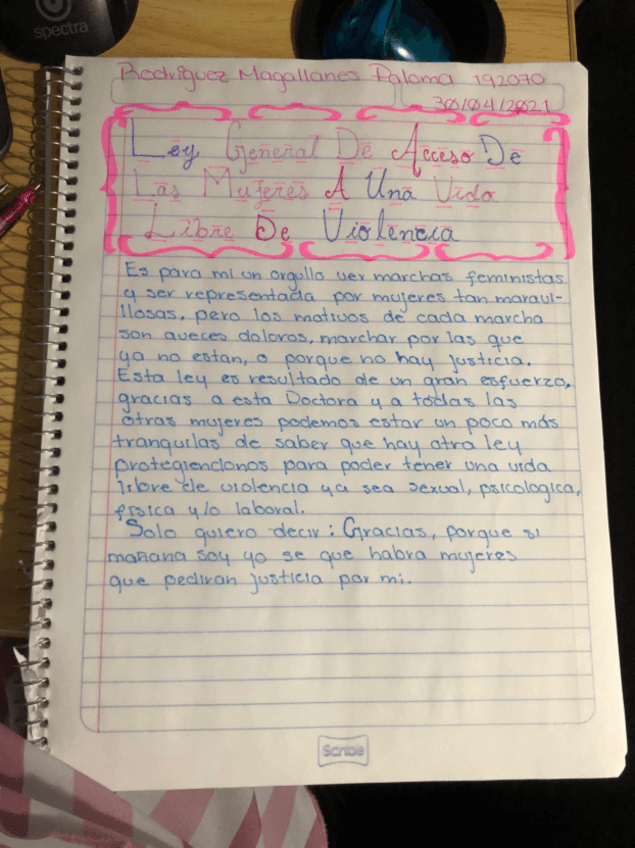 spectra
Rodríguez Magallanes Paloma 192070
30/04/2021
Ley General De Acceso De
Las Mujeres A Una Vida
Libre De Violencia
Es para mi un orgullo ver marchas feministas
y ser representada por mujeres tan maravi-
llosas, pero los motivos de cada marcha
son aveces doloros, marchar por las que
ya no estan, o porque no hay justicia.
Esta ley es resultado de un gran esfuerzo,
gracias a esta Doctora y a todas las
otras mujeres podemos estar un poco más
tranquilas de saber que hay otra ley
protegiendonos para poder tener una vida
libre de violencia ya sea sexual, psicologica,
fisica y/o laboral.
Solo quiero decir: Gracias, porque si
mañana soy yo se que habra mujeres
que pediran justicia por mi.
Scribe